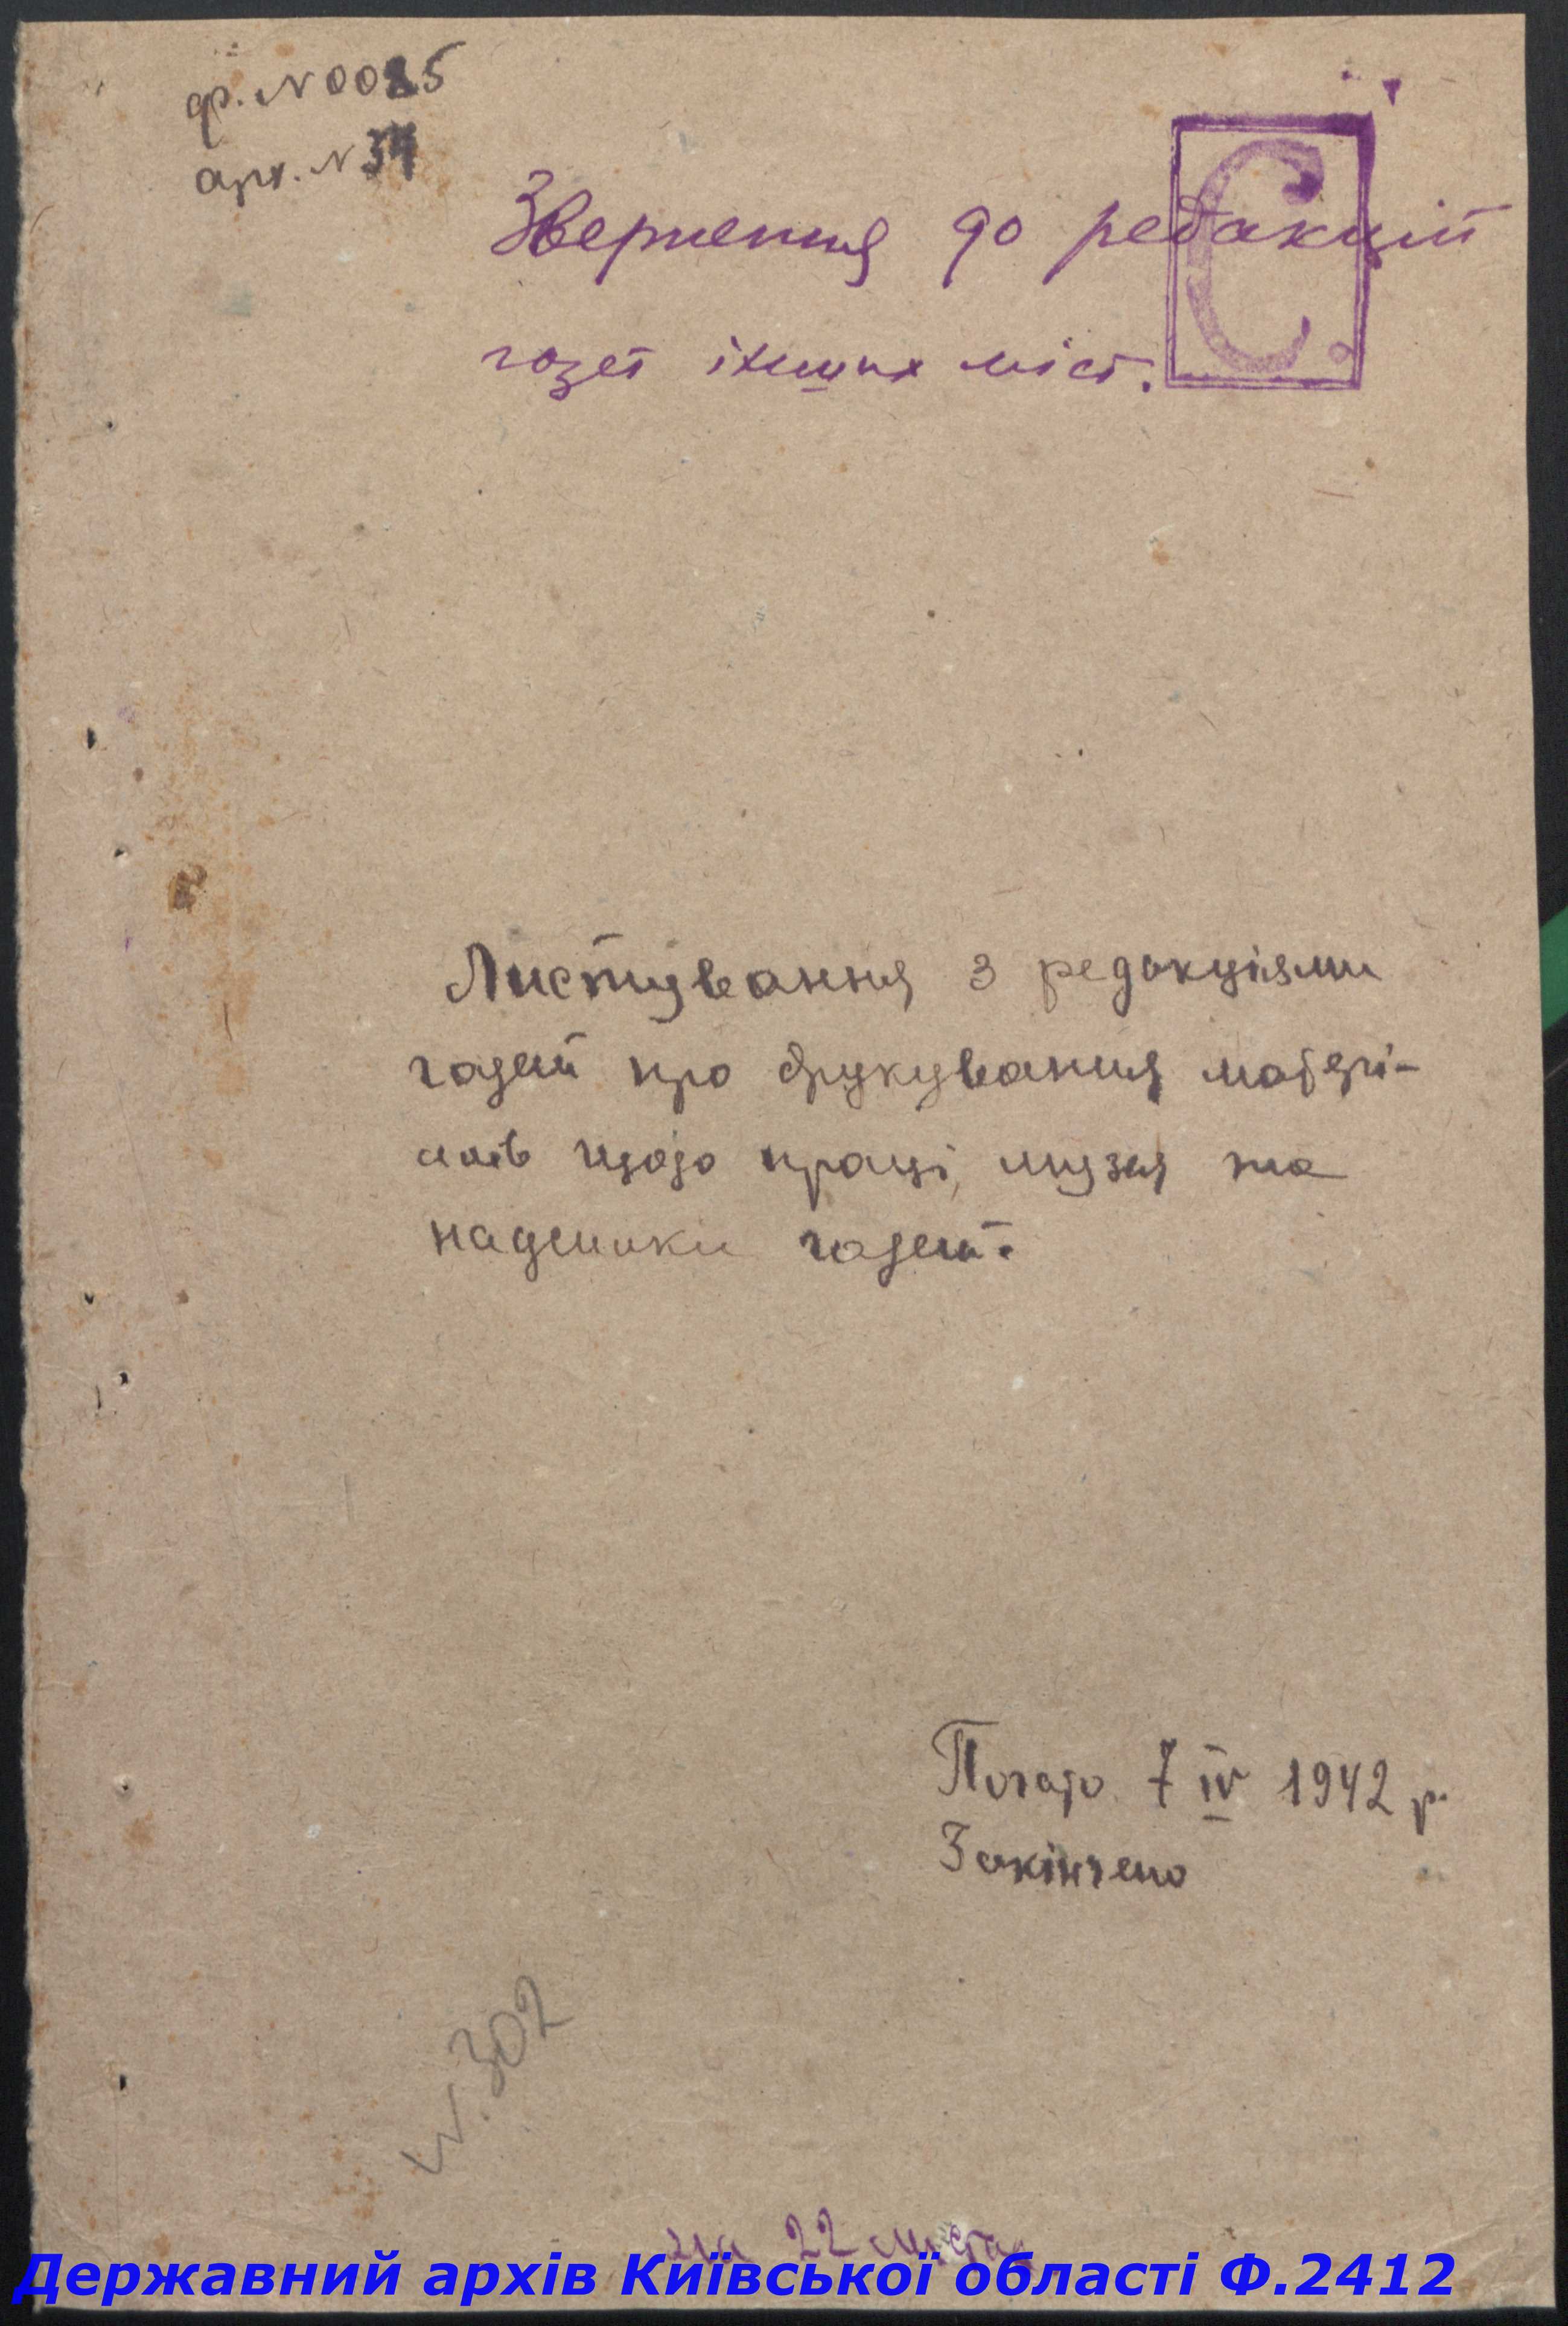 ф. N 0085
арх. N 34
С.
Звернення до редакцій
газет інших міст.
Листування з редакціями
газет про друкування матері-
алів щодо праці музея та
надсилки газет.
Почато 7 IV 1942 р.
Закінчено
N 302
на 22 листах
Державний архів Київської області Ф.2412